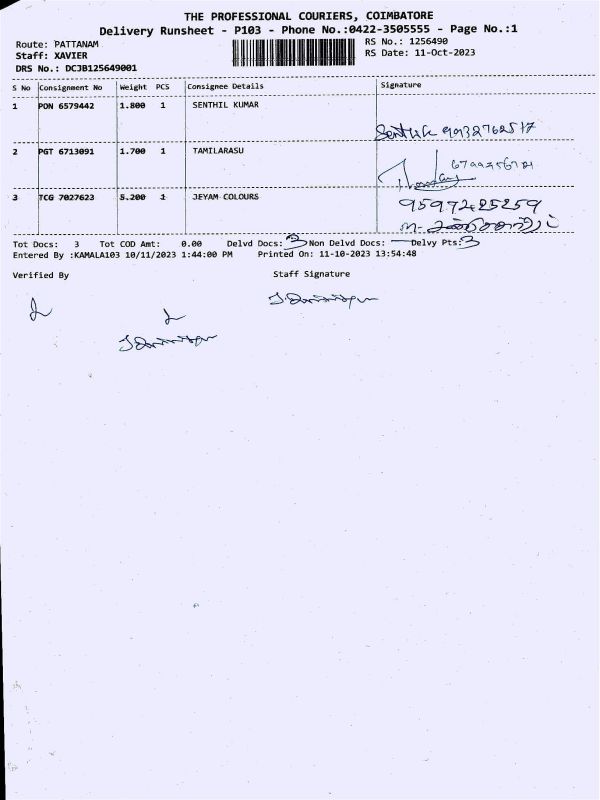 THE PROFESSIONAL COURIERS, COIMBATORE
Delivery Runsheet - P103 - Phone No.:0422-3505555 - Page No.:1
Route: PATTANAM RS No.: 1256490
Staff: XAVIER RS Date: 11-Oct-2023
DRS No.: DCJB125649001
S No Consignment No Weight PCS Consignee Details Signature
1 PON 6579442 1.800 1 SENTHIL KUMAR
2 PGT 6713091 1.700 1 TAMILARASU
3 TCG 7027623 5.200 1 JEYAM COLOURS
9597425259
Tot Docs: 3 Tot COD Amt: 0.00 Delvd Docs: 3 Non Delvd Docs: — Delvy Pts: 3
Entered By :KAMALA103 10/11/2023 1:44:00 PM Printed On: 11-10-2023 13:54:48
Verified By Staff Signature